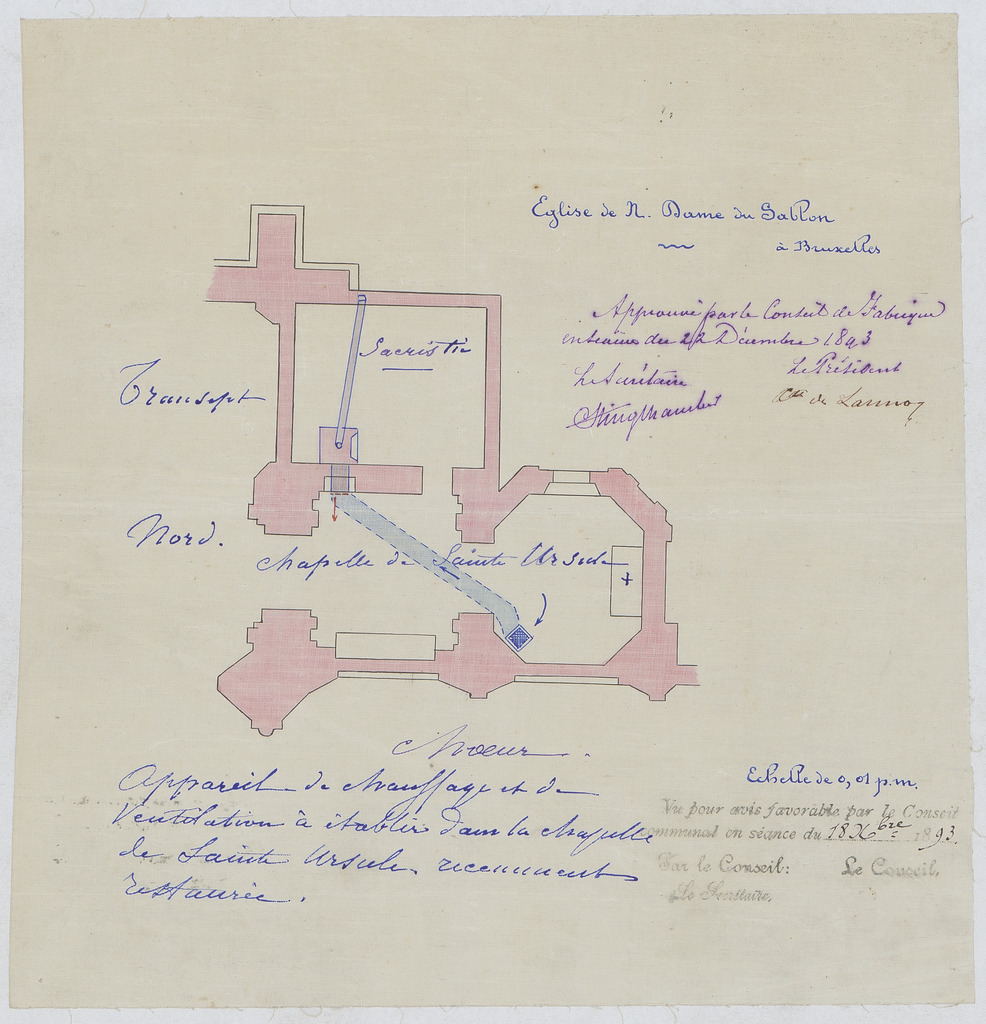 Eglise de N. Dame du Sablon
à Bruxelles
Approuvé par le Conseil de Fabrique
en séance du 22 Décembre 1893
Le Secrétaire
Le Président
de Lannoy
Sacristie
Transept
Nord.
Chapelle de Sainte Ursule
Choeur.
Appareil de chauffage et de
Ventilation à établir dans la chapelle
de Sainte Ursule, récemment
restaurée.
Echelle de 0,01 p.m.
Vu pour avis favorable par le Conseil
communal en séance du 18 Xbre 1893.
Par le Conseil:
Le Conseil,
Le Secrétaire,